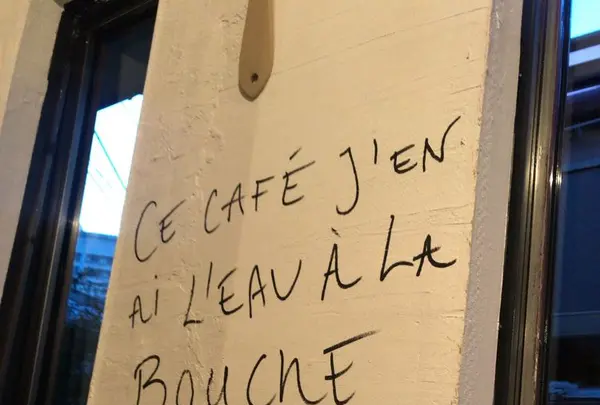 CE CAFÉ J'EN
AI L'EAU À LA
BOUCHE